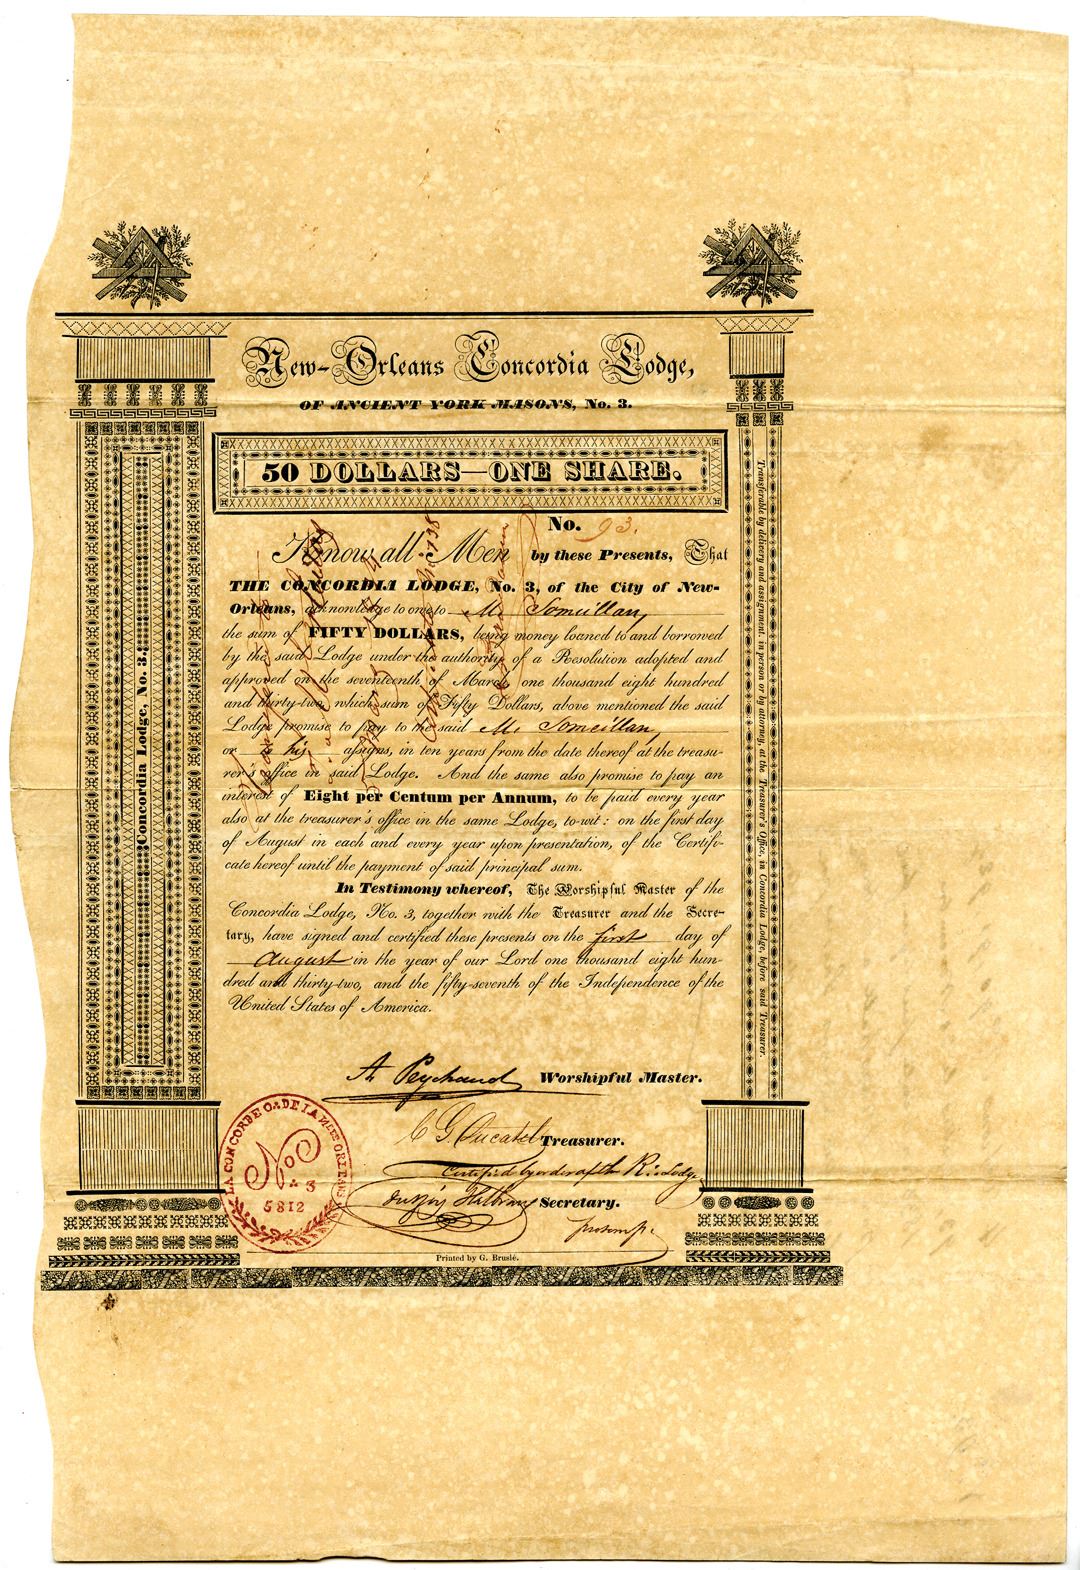 New-Orleans Concordia Lodge,
OF ANCIENT YORK MASONS, No. 3.
50 DOLLARS—ONE SHARE.
No. 93.
Know all Men by these Presents, That
THE CONCORDIA LODGE, No. 3, of the City of New-
Orleans, acknowledge to owe to M. Someillan,
the sum of FIFTY DOLLARS, being money loaned to and borrowed
by the said Lodge under the authority of a Resolution adopted and
approved on the seventeenth of March, one thousand eight hundred
and thirty-two, which sum of Fifty Dollars, above mentioned the said
Lodge promise to pay to the said M. Someillan,
or his assigns, in ten years from the date thereof at the treasu-
rer's office in said Lodge. And the same also promise to pay an
interest of Eight per Centum per Annum, to be paid every year
also at the treasurer's office in the same Lodge, to-wit: on the first day
of August in each and every year upon presentation, of the Certifi-
cate hereof until the payment of said principal sum.
In Testimony whereof, The Worshipful Master of the
Concordia Lodge, No. 3, together with the Treasurer and the Secre-
tary, have signed and certified these presents on the first day of
August in the year of our Lord one thousand eight hun-
dred and thirty-two, and the fifty-seventh of the Independence of the
United States of America.
A. Peychaud Worshipful Master.
Treasurer.
Certified by order of the R. Lodge
Secretary.
Printed by G. Bruslé.
Concordia Lodge, No. 3.
Transferable by delivery and assignment, in person or by attorney, at the Treasurer's Office, in Concordia Lodge, before said Treasurer.
LA CONCORDE
No
3
5812